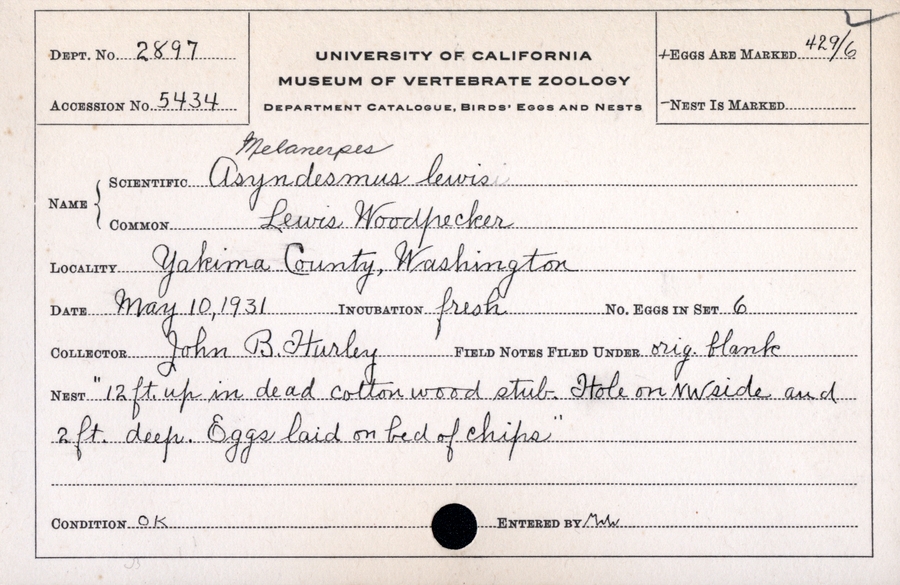 Dept. No. 2897
Accession No. 5434
UNIVERSITY OF CALIFORNIA
MUSEUM OF VERTEBRATE ZOOLOGY
Department Catalogue, Birds' Eggs and Nests
+Eggs Are Marked 429/6
-Nest Is Marked
Melanerpes
Name { Scientific Asyndesmus lewisi
Common Lewis Woodpecker
Locality Yakima County, Washington
Date May 10, 1931 Incubation fresh No. Eggs in Set 6
Collector John B. Hurley Field Notes Filed Under orig. blank
Nest "12 ft. up in dead cottonwood stub. Hole on NW side and
2 ft. deep. Eggs laid on bed of chips"
Condition OK Entered by